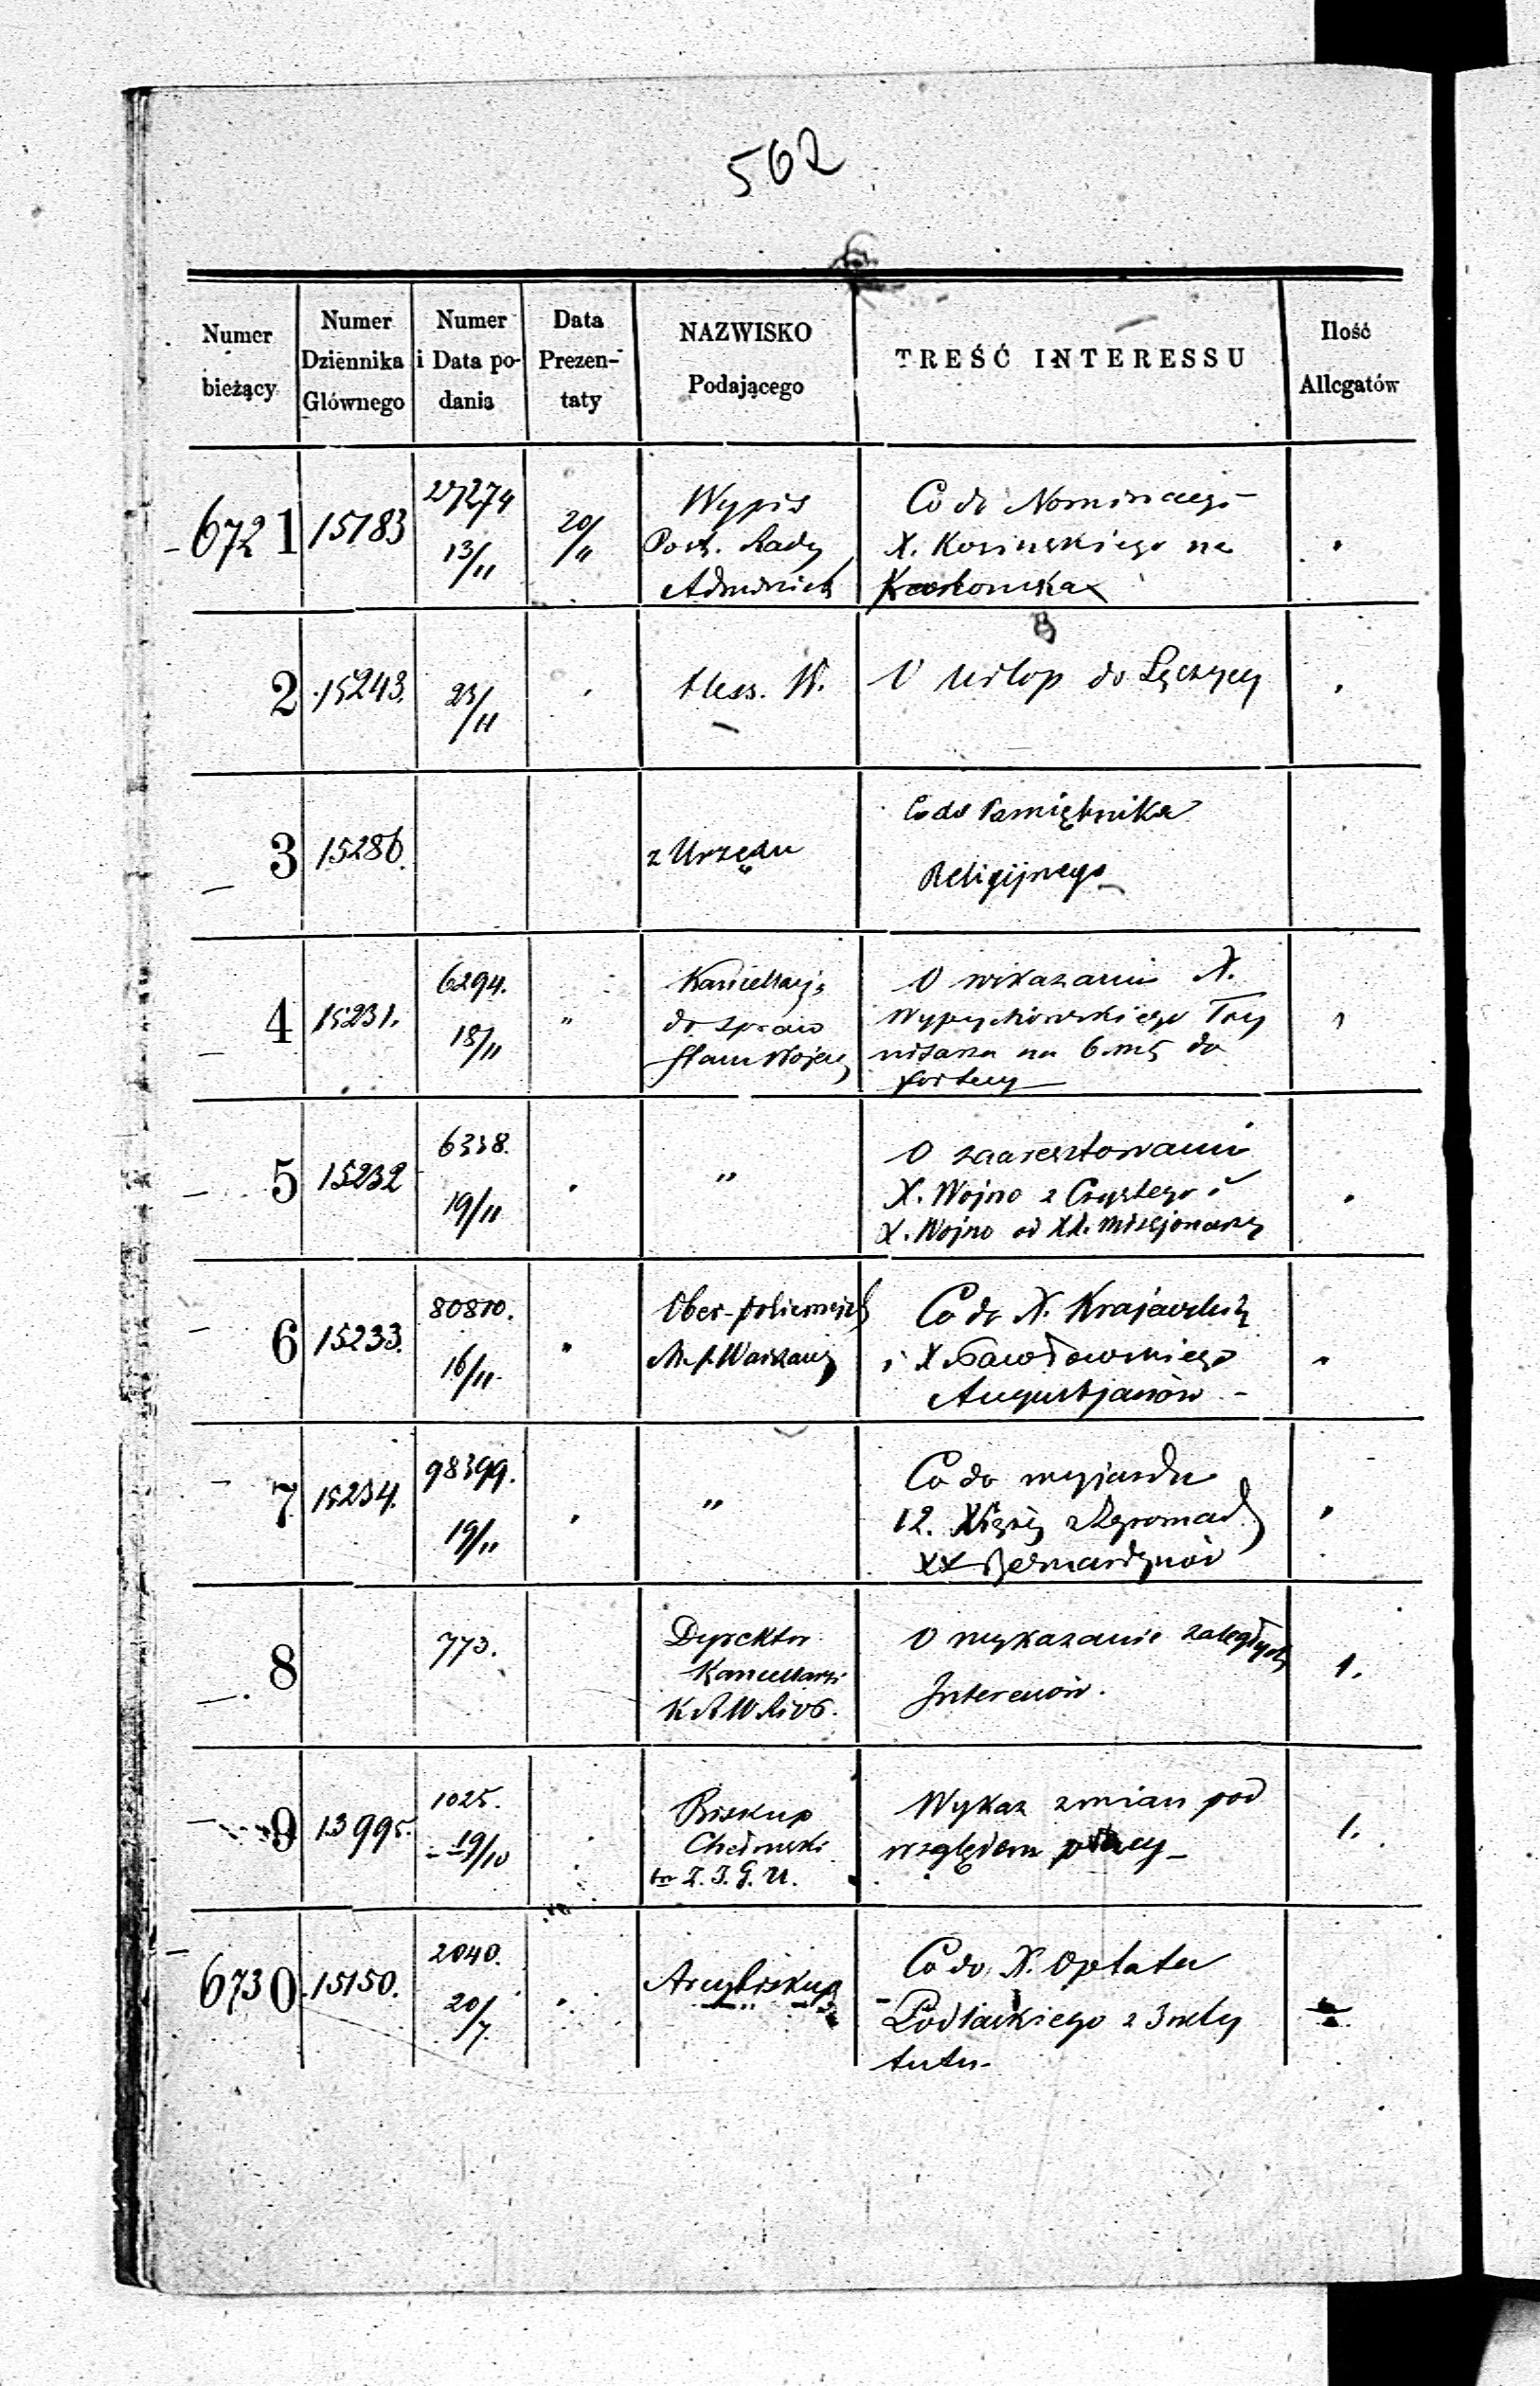 502
Numer bieżący
Numer Dziennika Głównego
Numer i Data podania
Data Prezentaty
NAZWISKO Podającego
TREŚĆ INTERESSU
Ilość Allegatów
6721 15183 27274 13/11 20/11
Wypis
Post. Rady
Co do Nominacyi
X. Kosinskiego na
2 15243. 23/11
W.
O Urlop do Łęczycy
3 15286.
z Urzędu
Co do Pamiętnika
Religijnego
4 15231. 6294. 18/11 "
Kancellarya
do spraw
Stanu Wojen
O wskazaniu X.
na 6 do
fortecy
5 15232 6338. 19/11
"
O zaaresztowaniu
X. Wojno z Czystego i
X. Wojno od XX. Missjonarzy
6 15233. 80810. 16/11
Ober-policmajst
M. s. Warszawy
Co do X. Krajewski
i X Pawłowskiego
Augustjanów -
7 15234. 98399. 19/11
"
Co do wyjazdu
12. Xięży z Zgromad
XX Bernardynów
8 773.
Dyrektor
Kancellarii
O wykazanie zaległych
Interesów. 1.
9 13995. 1025. 19/10
Biskup
Chełmski
Wykaz zmian pod
względem 1.
6730 15150. 2040. 20/7
Arcybiskup
Co do X. Optata
Podlaskiego z Insty
tutu-